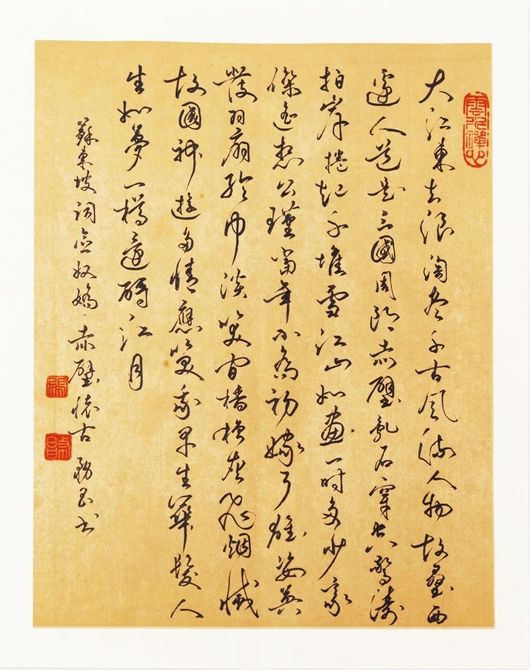 大江東去浪淘盡千古風流人物故壘西
邊人道是三國周郎赤壁亂石穿空驚濤
拍岸捲起千堆雪江山如畫一時多少豪
傑遙想公瑾當年小喬初嫁了雄姿英
發羽扇綸巾淡笑間檣櫓灰飛烟滅
故國神遊多情應笑我早生華髮人
生如夢一樽還酹江月
蘇東坡詞念奴嬌赤壁懷古 書